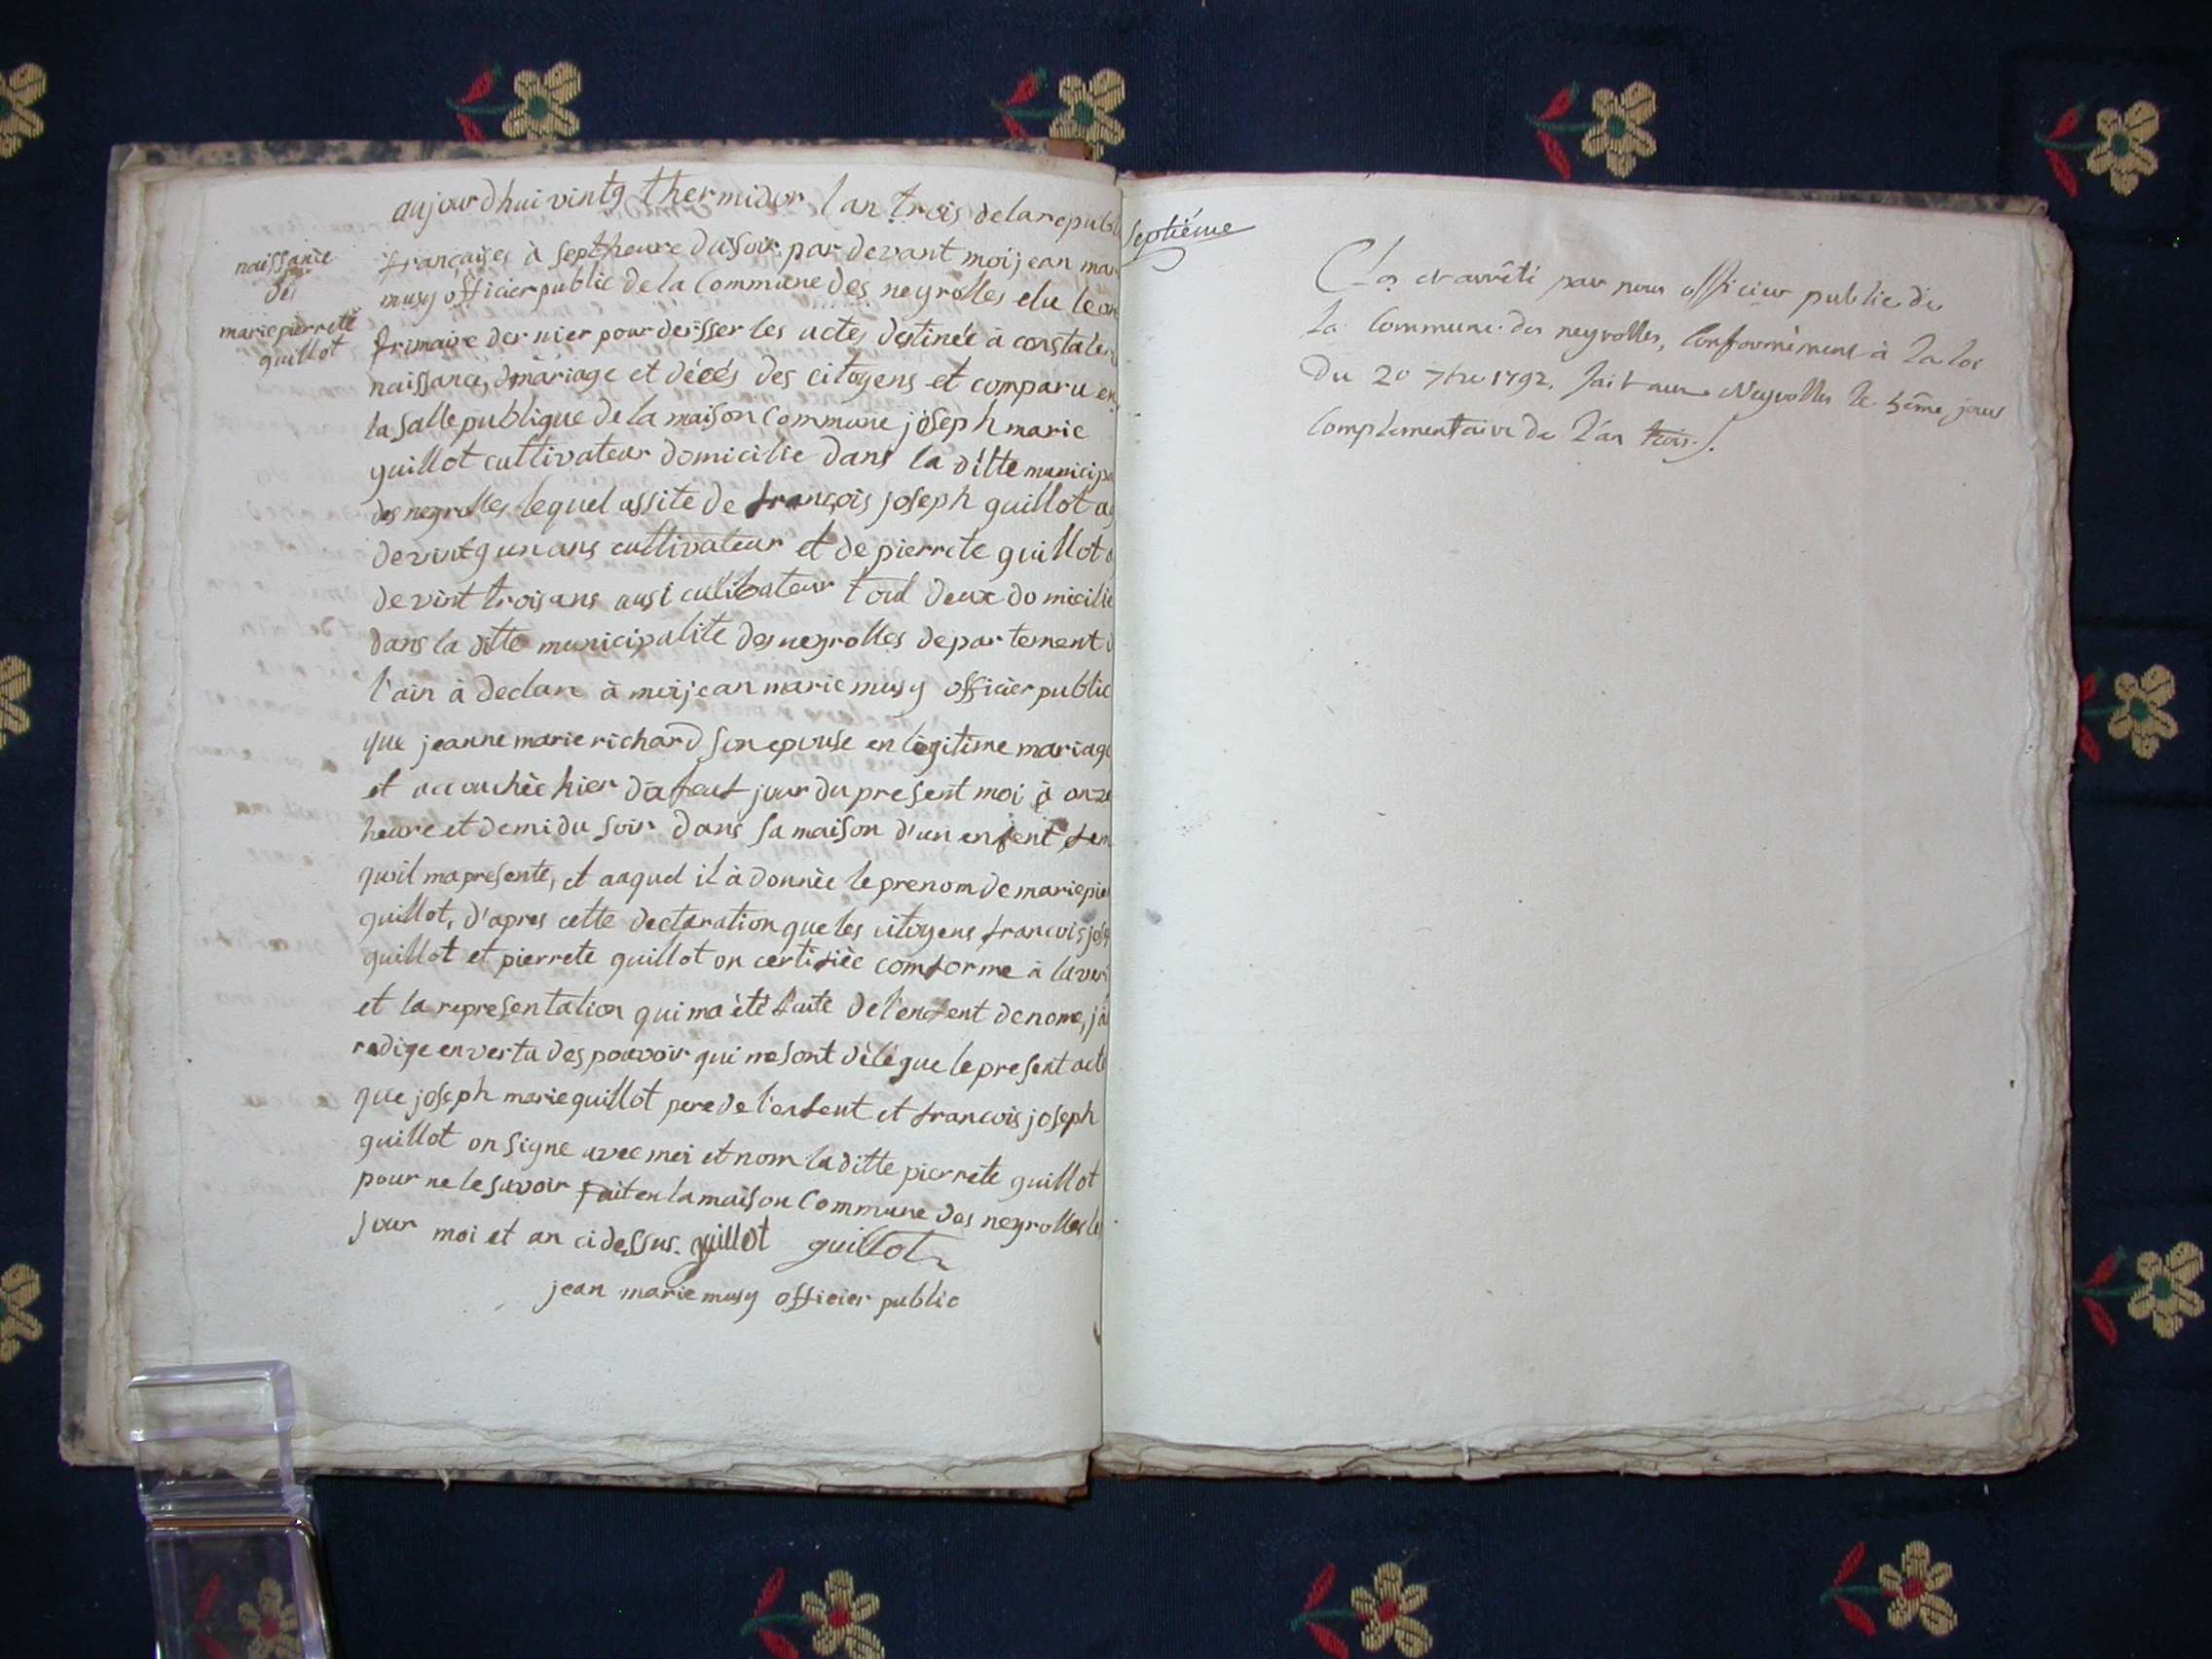 naissance
de
marie pierrete
guillot
aujourdhui vintg thermidor lan trois de la republ
françaises à sept heure du soir par devant moi jean mar
musy officier public de la Commune des neyrolles elu le on
frimaire dernier pour desser les actes destinée à constater
naissance, mariage et décés des citoyens et comparu en
la salle publique de la maison Commune joseph marie
guillot cultivateur domicilie dans la ditte municipa
des neyrolles lequel assite de françois joseph guillot a
de vintg un ans cultivateur et de pierrete guillot
de vint trois ans ausi cultivateur tout deux domicilie
dans la ditte municipalite des neyrolles departement d
l'ain à declare à moi jean marie musy officier public
que jeanne marie richard son epouse en legitime mariage
et accouchèe hier jour du present moi à onze
heure et demi du soir dans sa maison d'un enfent fem
quil ma presente, et auquel il à donnèe le prenom de marie pie
guillot, d'apres cette declaration que les citoyens francois jose
guillot et pierrete guillot on certifièe comforme à la veri
et la representation qui ma èté faite de l'enfent denome, j'ai
redige en vertu des pouvoir qui me sont délégue le present acte
que joseph marie guillot pere de l'enfent et francois joseph
guillot on signe avec moi et nom la ditte pierrete guillot
pour ne le savoir fait en la maison Commune des neyrolles le
jour moi et an ci dessus. guillot guillot
jean marie musy officier public
septiéme
Clos et arrêté par nous officier public de
la Commune des neyrolles, Conformément à la loi
du 20 7bre 1792. fait aux Neyrolles le 5ème jour
Complementaire de l'an trois.